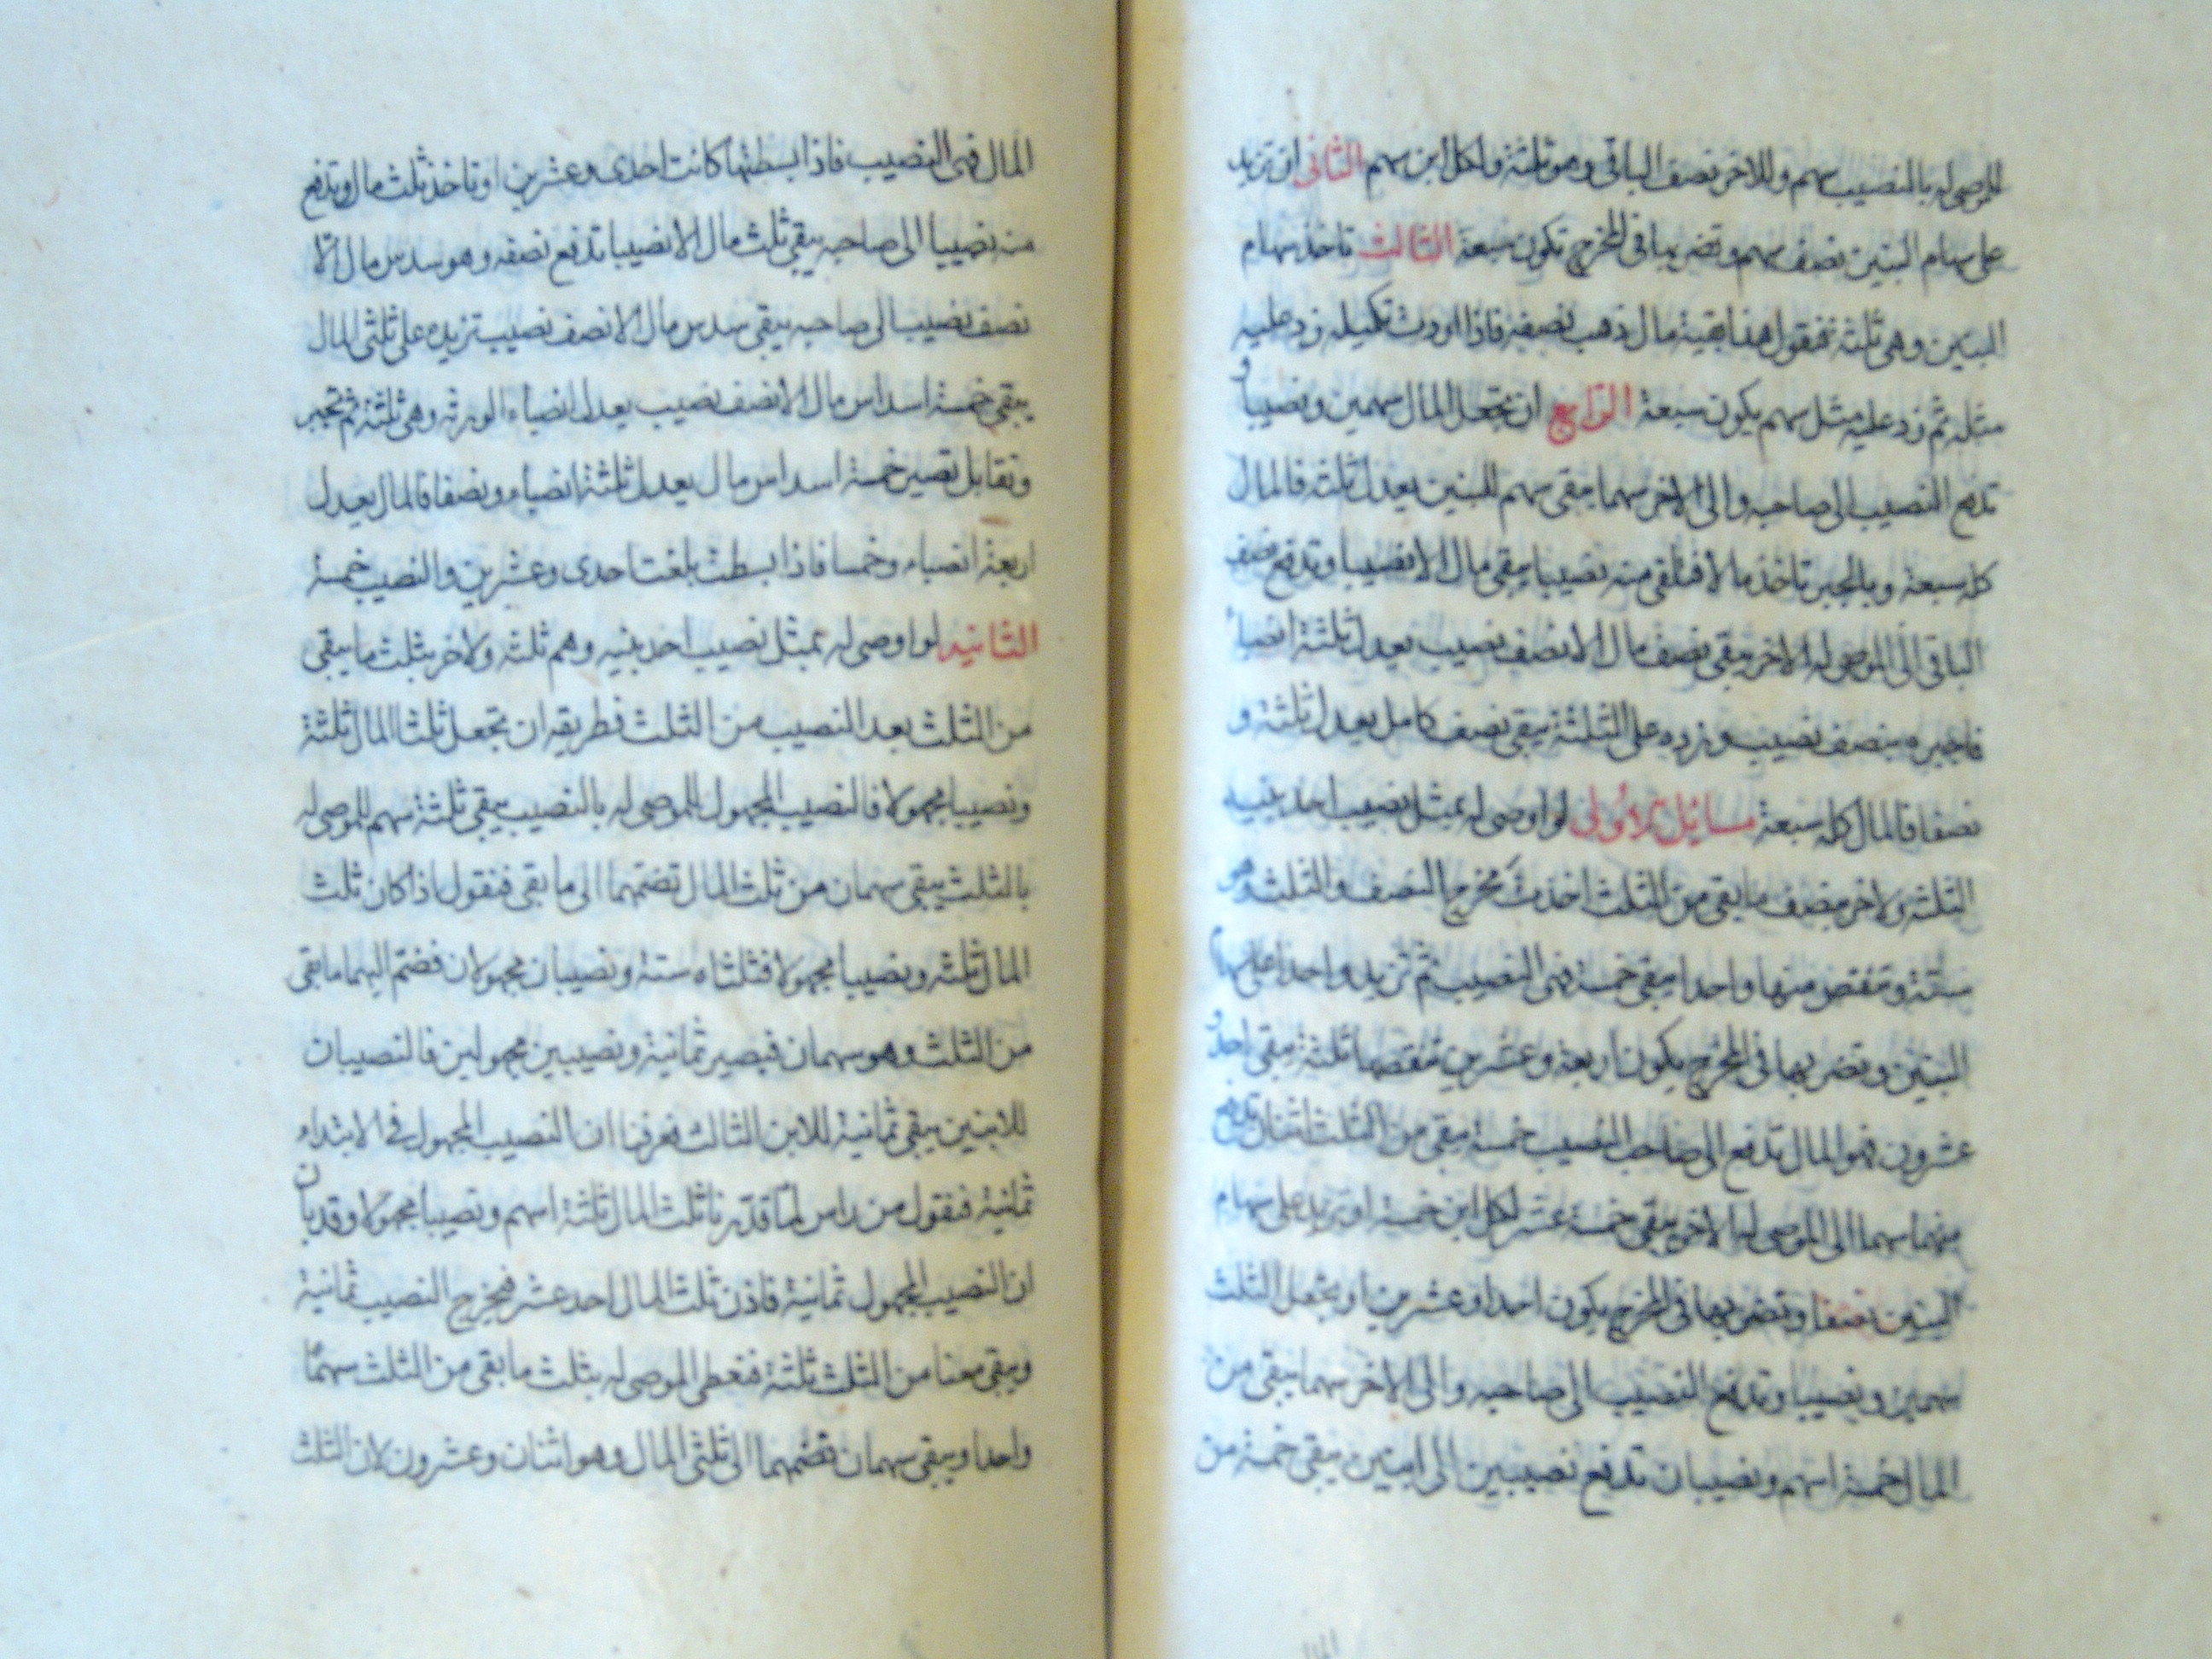 للموصى له بالنصيب سهم وللاخر نصف الباقى وهو ثلثة ولكل ابن سهم الثانى ان تزيد
على سهام البنين نصف سهم وتضربها فى المخرج تكون سبعة الثالث تاخذ سهام
البنين وهى ثلثة فنقول هذا بقية مال ذهب نصفه فاذا اردت تكميله زد عليه
مثله ثم زد عليه مثل سهم يكون سبعة الرابع ان تجعل المال سهمين ونصيبا و
تدفع النصيب الى صاحبه والى الاخر سهما يبقى سهم للبنين يعدل ثلثة فالمال
كله سبعة وبالجبر تاخذ مالا فتلقى منه نصيبا يبقى مال الا نصيبا وتدفع نصف
الباقى الى الموصى له الاخر يبقى نصف مال الا نصف نصيب يعدل ثلثة انصباء
فاجبره بنصف نصيب وزده على الثلثة يبقى نصف كامل يعدل ثلثة و
نصفا فالمال كله سبعة مسائل الاولى لو اوصى له بمثل نصيب احد بنيه
الثلثة ولاخر بنصف ما بقى من الثلث اخذت مخرج النصف والثلث وهو
ستة وتنقص منها واحدا يبقى خمسة فهى النصيب ثم تزيد واحدا على سهام
البنين وتضربها فى المخرج يكون اربعة وعشرين تنقصها ثلثة يبقى احد و
عشرون فهو المال تدفع الى صاحب النصيب خمسة يبقى من الثلث اثنان تدفع
منهما سهما الى الموصى له الاخر يبقى خمسة عشر لكل ابن خمسة او تزيد على سهام
البنين نصفا وتضربها فى المخرج يكون احدا وعشرين او تجعل الثلث
سهمين ونصيبا وتدفع النصيب الى صاحبه والى الاخر سهما يبقى من
المال خمسة اسهم ونصيبان تدفع نصيبين الى ابنين يبقى خمسة من
المال فهى النصيب فاذا بسطتها كانت احدى وعشرين او تاخذ ثلث مال وتدفع
منه نصيبا الى صاحبه يبقى ثلث مال الا نصيبا تدفع نصفه وهو سدس مال الا
نصف نصيب الى صاحبه يبقى سدس مال الا نصف نصيب تزيده على ثلثى المال
يبقى خمسة اسداس مال الا نصف نصيب يعدل انصباء الورثه وهى ثلثة ثم تجبر
وتقابل تصير خمسة اسداس مال يعدل ثلثة انصباء ونصفا فالمال يعدل
اربعة انصباء وخمسا فاذا بسطت بلغت احدى وعشرين والنصيب خمسة
الثانيه لو اوصى له بمثل نصيب احد بنيه وهم ثلثه ولاخر بثلث ما يبقى
من الثلث بعد النصيب من الثلث فطريقه ان تجعل ثلث المال ثلثة
ونصيبا مجهولا فالنصيب المجهول للموصى له بالنصيب يبقى ثلثة سهم للموصى له
بالثلث يبقى سهمان من ثلث المال تضمهما الى ما بقى فنقول اذا كان ثلث
المال ثلثه ونصيبا مجهولا فثلثاه ستة ونصيبان مجهولان فضم اليهما ما بقى
من الثلث وهو سهمان فيصير ثمانية ونصيبين مجهولين فالنصيبان
للابنين يبقى ثمانية للابن الثالث فعرفنا ان النصيب المجهول فى الابتداء
ثمانية فنقول من راس لما قدرنا ثلث المال ثلثة اسهم ونصيبا مجهولا وقد بان
ان النصيب المجهول ثمانية فاذن ثلث المال احد عشر فيخرج النصيب ثمانية
ويبقى معنا من الثلث ثلثة فنعطى الموصى له بثلث ما بقى من الثلث سهما
واحدا ويبقى سهمان فضمهما الى ثلثى المال وهو اثنان وعشرون لان الثلث